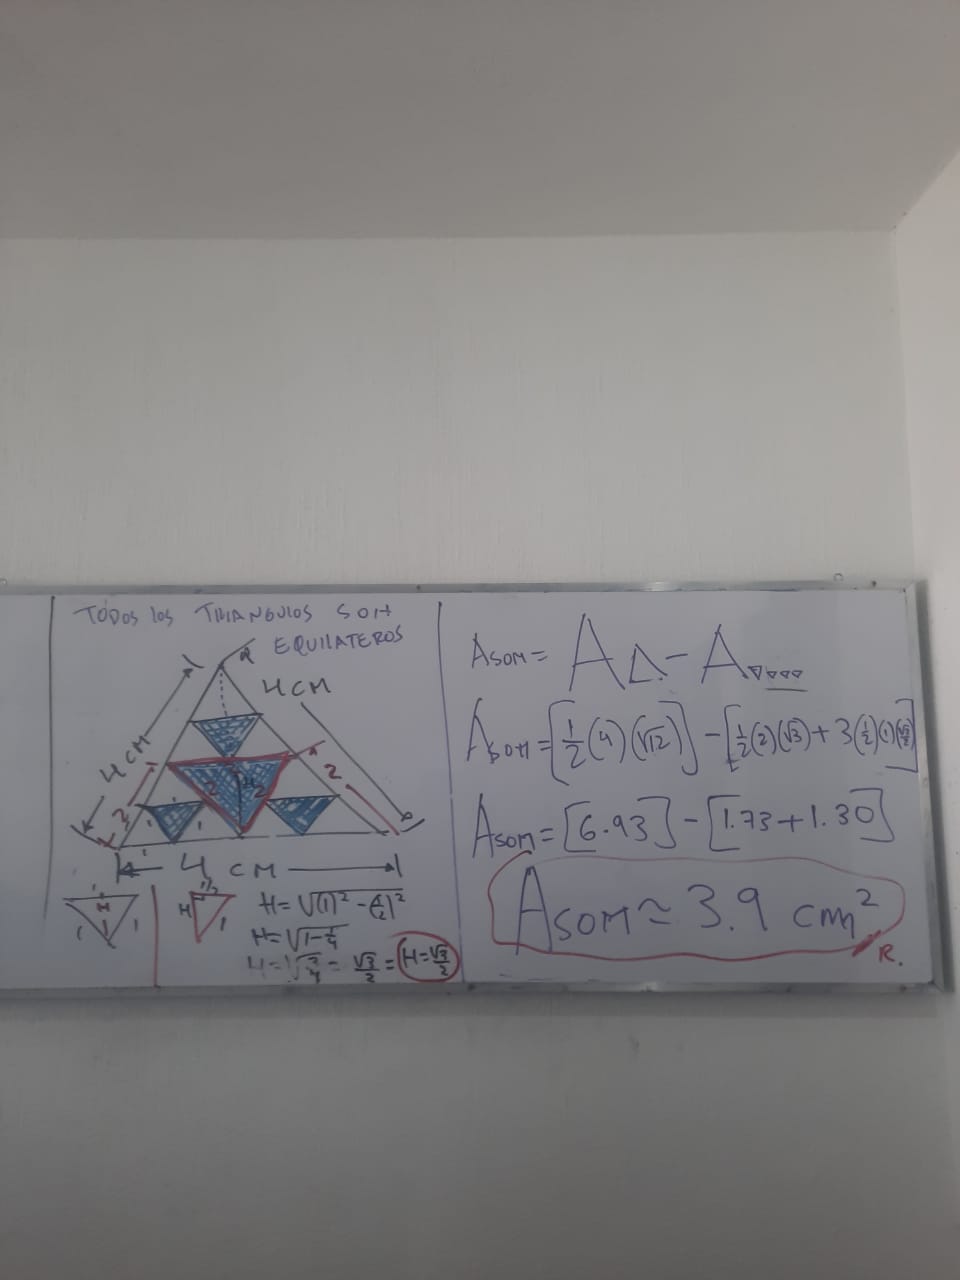 TODOS los TRIANGULOS SON
EQUILATEROS
4CM
4CM
2
2
2
2
1
1
1
4 CM
H
1
1
1/2
H
1
H=√(1)²-(1/2)²
H=√1-1/4
H=√3/4 = √3/2 = H=√3/2
ASOM= A△ - A▽▽▽▽
ASOM=[1/2(4)(√12)]-[1/2(2)(√3)+3(1/2)(1)(√3/2)]
ASOM=[6.93]-[1.73+1.30]
ASOM≈3.9 cm²
R.